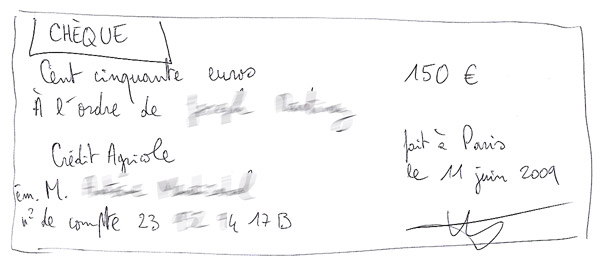 CHÈQUE
Cent cinquante euros 150 €
À l'ordre de
Crédit Agricole
fait à Paris
le 11 juin 2009
Ém. M.
n° de compte 23 4 17 B